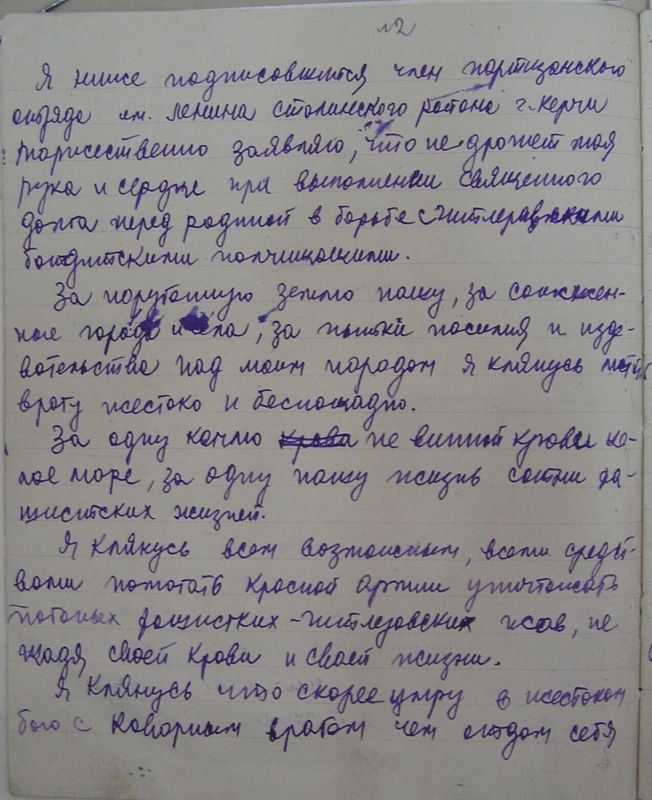 №2
Я ниже подписовшийся член портизанского
отряда им. Ленина Сталинского района г. Керчи
торжественно заявляю, что не дрожет моя
рука и сердце при выполнении священного
долга перед родиной в борьбе с гитлеравскими
бандитскими полчищами.
За поруганную землю нашу, за сожжен-
ные города и села, за пытки насилия и изде-
вательства над моим народом я клянусь мстить
врагу жестоко и беспощадно.
За одну каплю крови не винной крови це-
лое море, за одну нашу жизнь сотни фа-
шиситских жизней.
Я клянусь всем возможным, всеми средст-
вами помогать Красной Армии уничтожать
поганых фашистких-гитлеровских псов, не
щадя своей крови и своей жизни.
Я клянусь что скорее умру в жестоком
бою с коварным врагом чем отдам себя